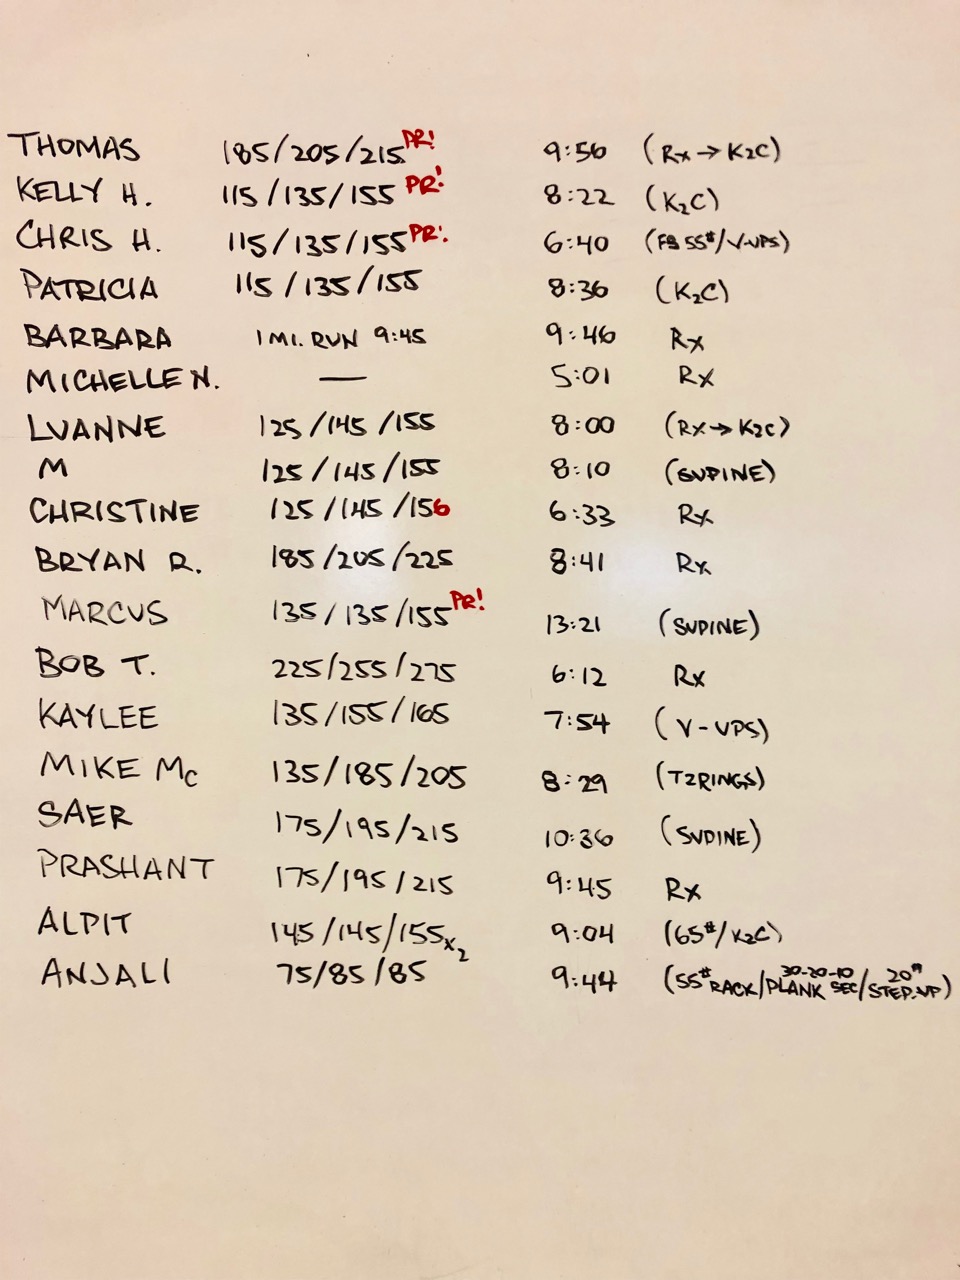 THOMAS 185/205/215 PR! 9:56 (Rx→K2C)
KELLY H. 115/135/155 PR! 8:22 (K2C)
CHRIS H. 115/135/155 PR! 6:40 (FS 55#/V-UPS)
PATRICIA 115/135/155 8:36 (K2C)
BARBARA 1 MI. RUN 9:45 9:46 Rx
MICHELLE N. — 5:01 Rx
LUANNE 125/145/155 8:00 (Rx→K2C)
M 125/145/155 8:10 (SUPINE)
CHRISTINE 125/145/156 6:33 Rx
BRYAN R. 185/205/225 8:41 Rx
MARCUS 135/135/155 PR! 13:21 (SUPINE)
BOB T. 225/255/275 6:12 Rx
KAYLEE 135/155/165 7:54 (V-UPS)
MIKE Mc 135/185/205 8:29 (T2RINGS)
SAER 175/195/215 10:36 (SUPINE)
PRASHANT 175/195/215 9:45 Rx
ALPIT 145/145/155x2 9:04 (65#/K2C)
ANJALI 75/85/85 9:44 (55# RACK/PLANK 30-20-10 SEC/20" STEP-UP)